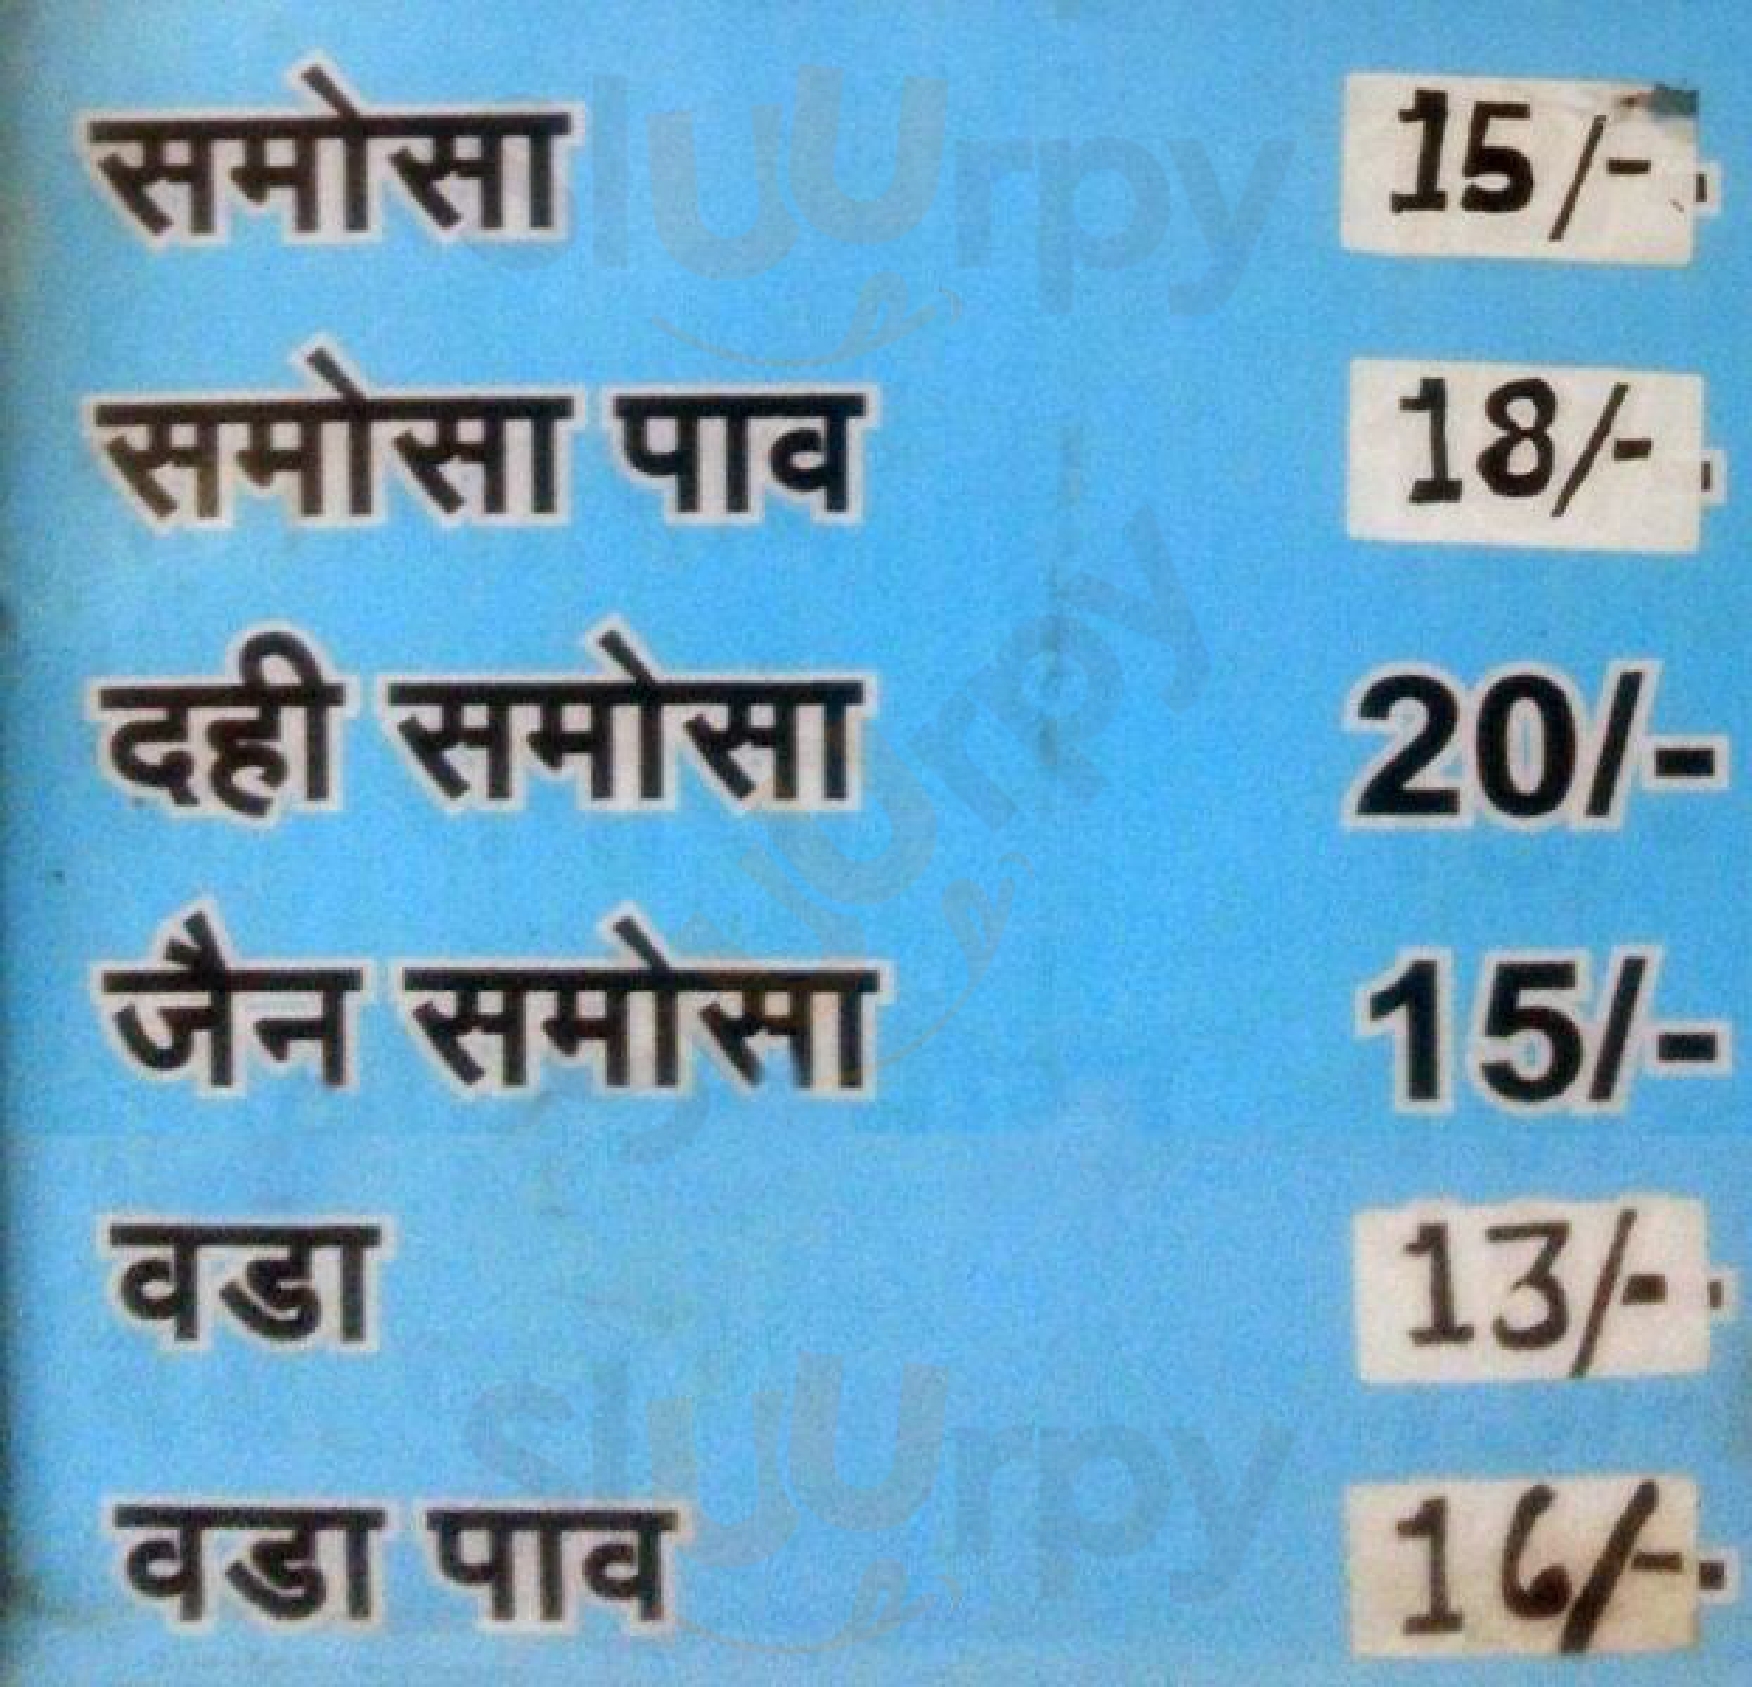 समोसा 15/-
समोसा पाव 18/-
दही समोसा 20/-
जैन समोसा 15/-
वडा 13/-
वडा पाव 16/-
sluurpy
sluurpy
sluurpy